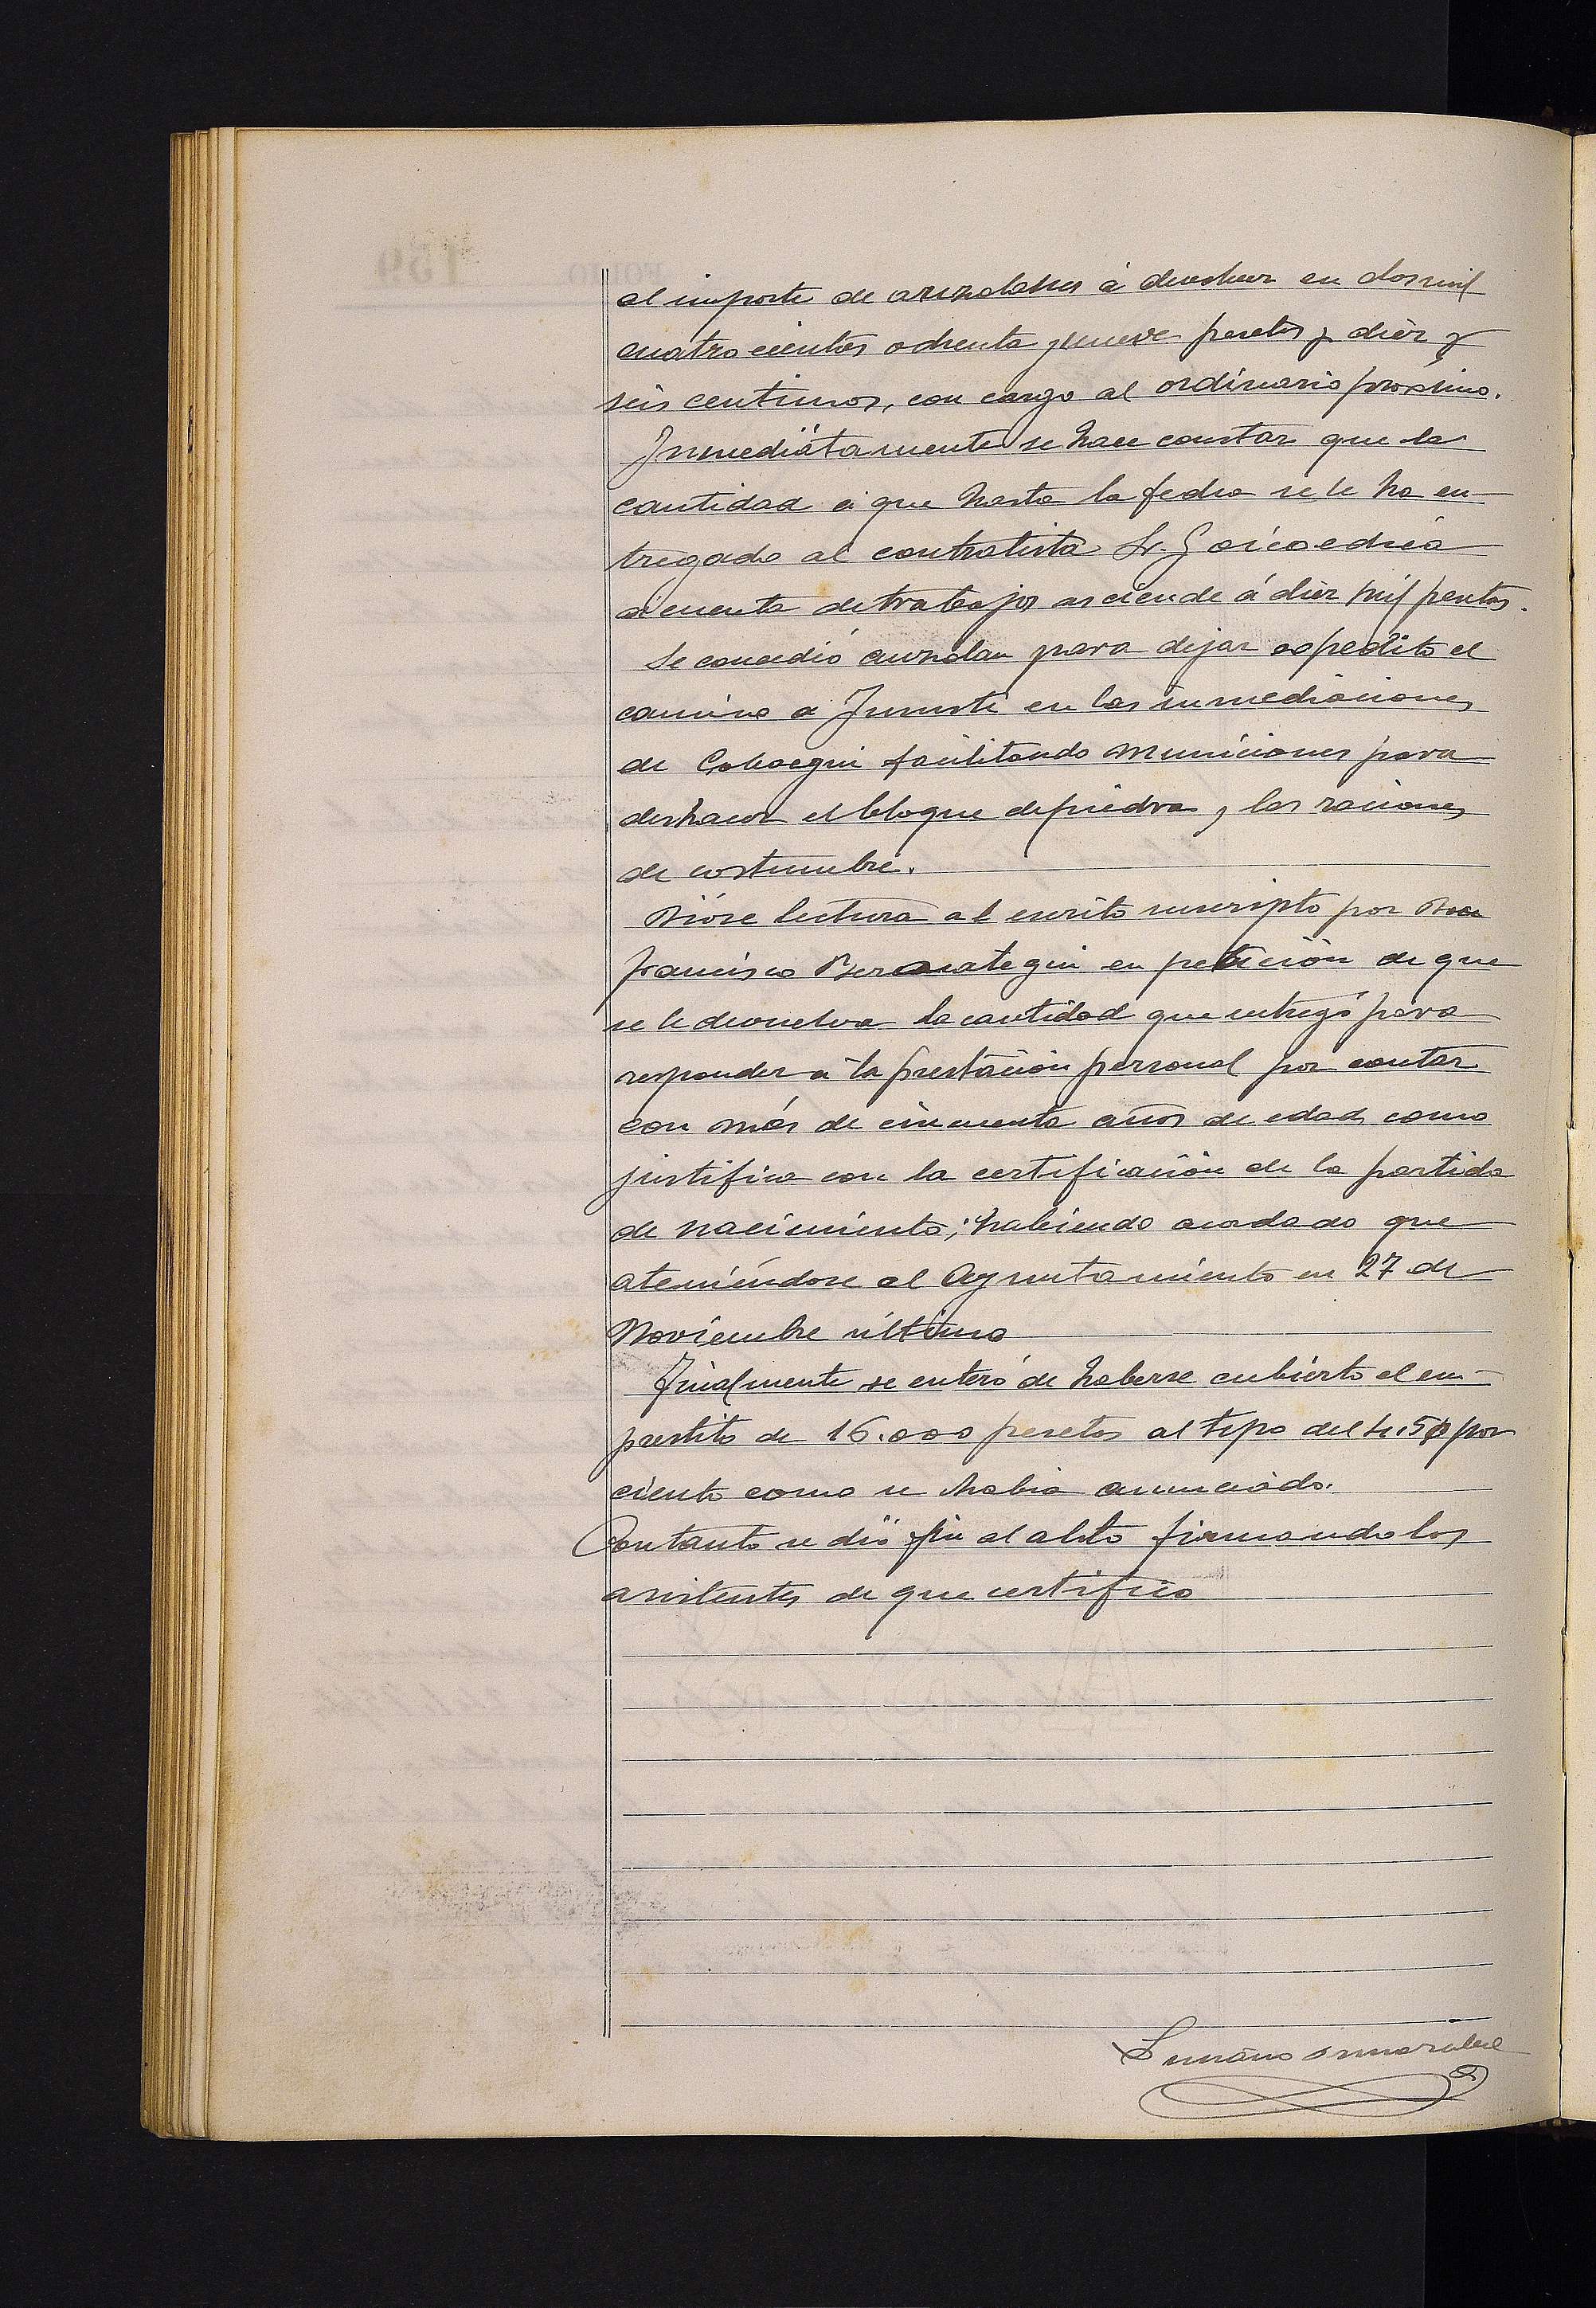 el importe de auzolanes á devolver en dos mil
cuatrocientos ochenta y nueve pesetas y diez y
seis centimos, con cargo al ordinario proximo.
Inmediatamente se hace constar que la
cantidad á que hasta la fecha se le ha en-
tregado al contratista Sr. Goicoechea
á cuenta de trabajos asciende á diez mil pesetas.
Se concedió auzolan para dejar expedito el
camino a en las inmediaciones
de facilitando municiones para
deshacer el bloque de piedra y las raciones
de costumbre.
Dióse lectura al escrito suscripto por Don
Francisco Berasategui en petición de que
se le devuelva la cantidad que entregó para
responder a la prestación personal por contar
con más de cincuenta años de edad como
justifica con la certificación de la partida
de nacimiento; habiendo acordado que
ateniéndose al Ayuntamiento en 27 de
Noviembre último
Finalmente se enteró de haberse cubierto el em-
prestito de 16.000 pesetas al tipo del 4,50 por
ciento como se habia anunciado.
Con tanto se dió fin al acto firmando los
asistentes de que certifico